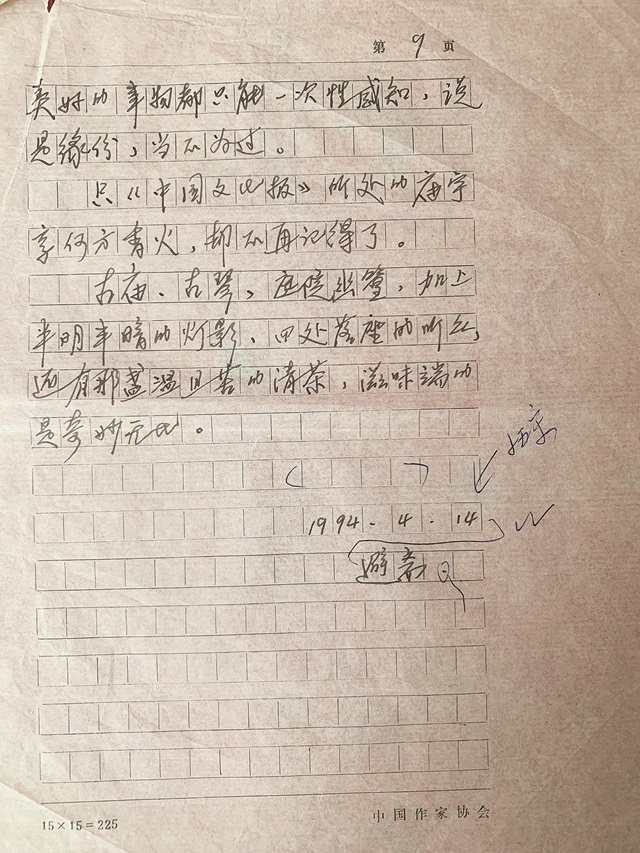 第 9 页
美好的事物都只能一次性感知，说
是缘份，当不为过。
只《中国文化报》所处的庙宇
享何方香火，却不再记得了。
古庙、古琴、庭院幽篁，加上
半明半暗的灯影、四处落座的听么，
还有那盏温且苦的清茶，滋味端的
是奇妙无比。
1994.4.14
避斋
15×15=225
中国作家协会